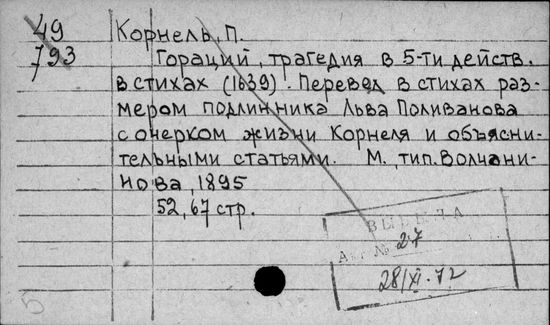 49
793
Корнель, П.
Гораций, трагедия в 5-ти действ.
в стихах (1639). Перевод в стихах раз-
мером подлинника Льва Поливанова
с очерком жизни Корнеля и объясни-
тельными статьями. М., тип. Волчани-
нова, 1895
52, 67 стр.
Акт № 27
28/XI-72
5